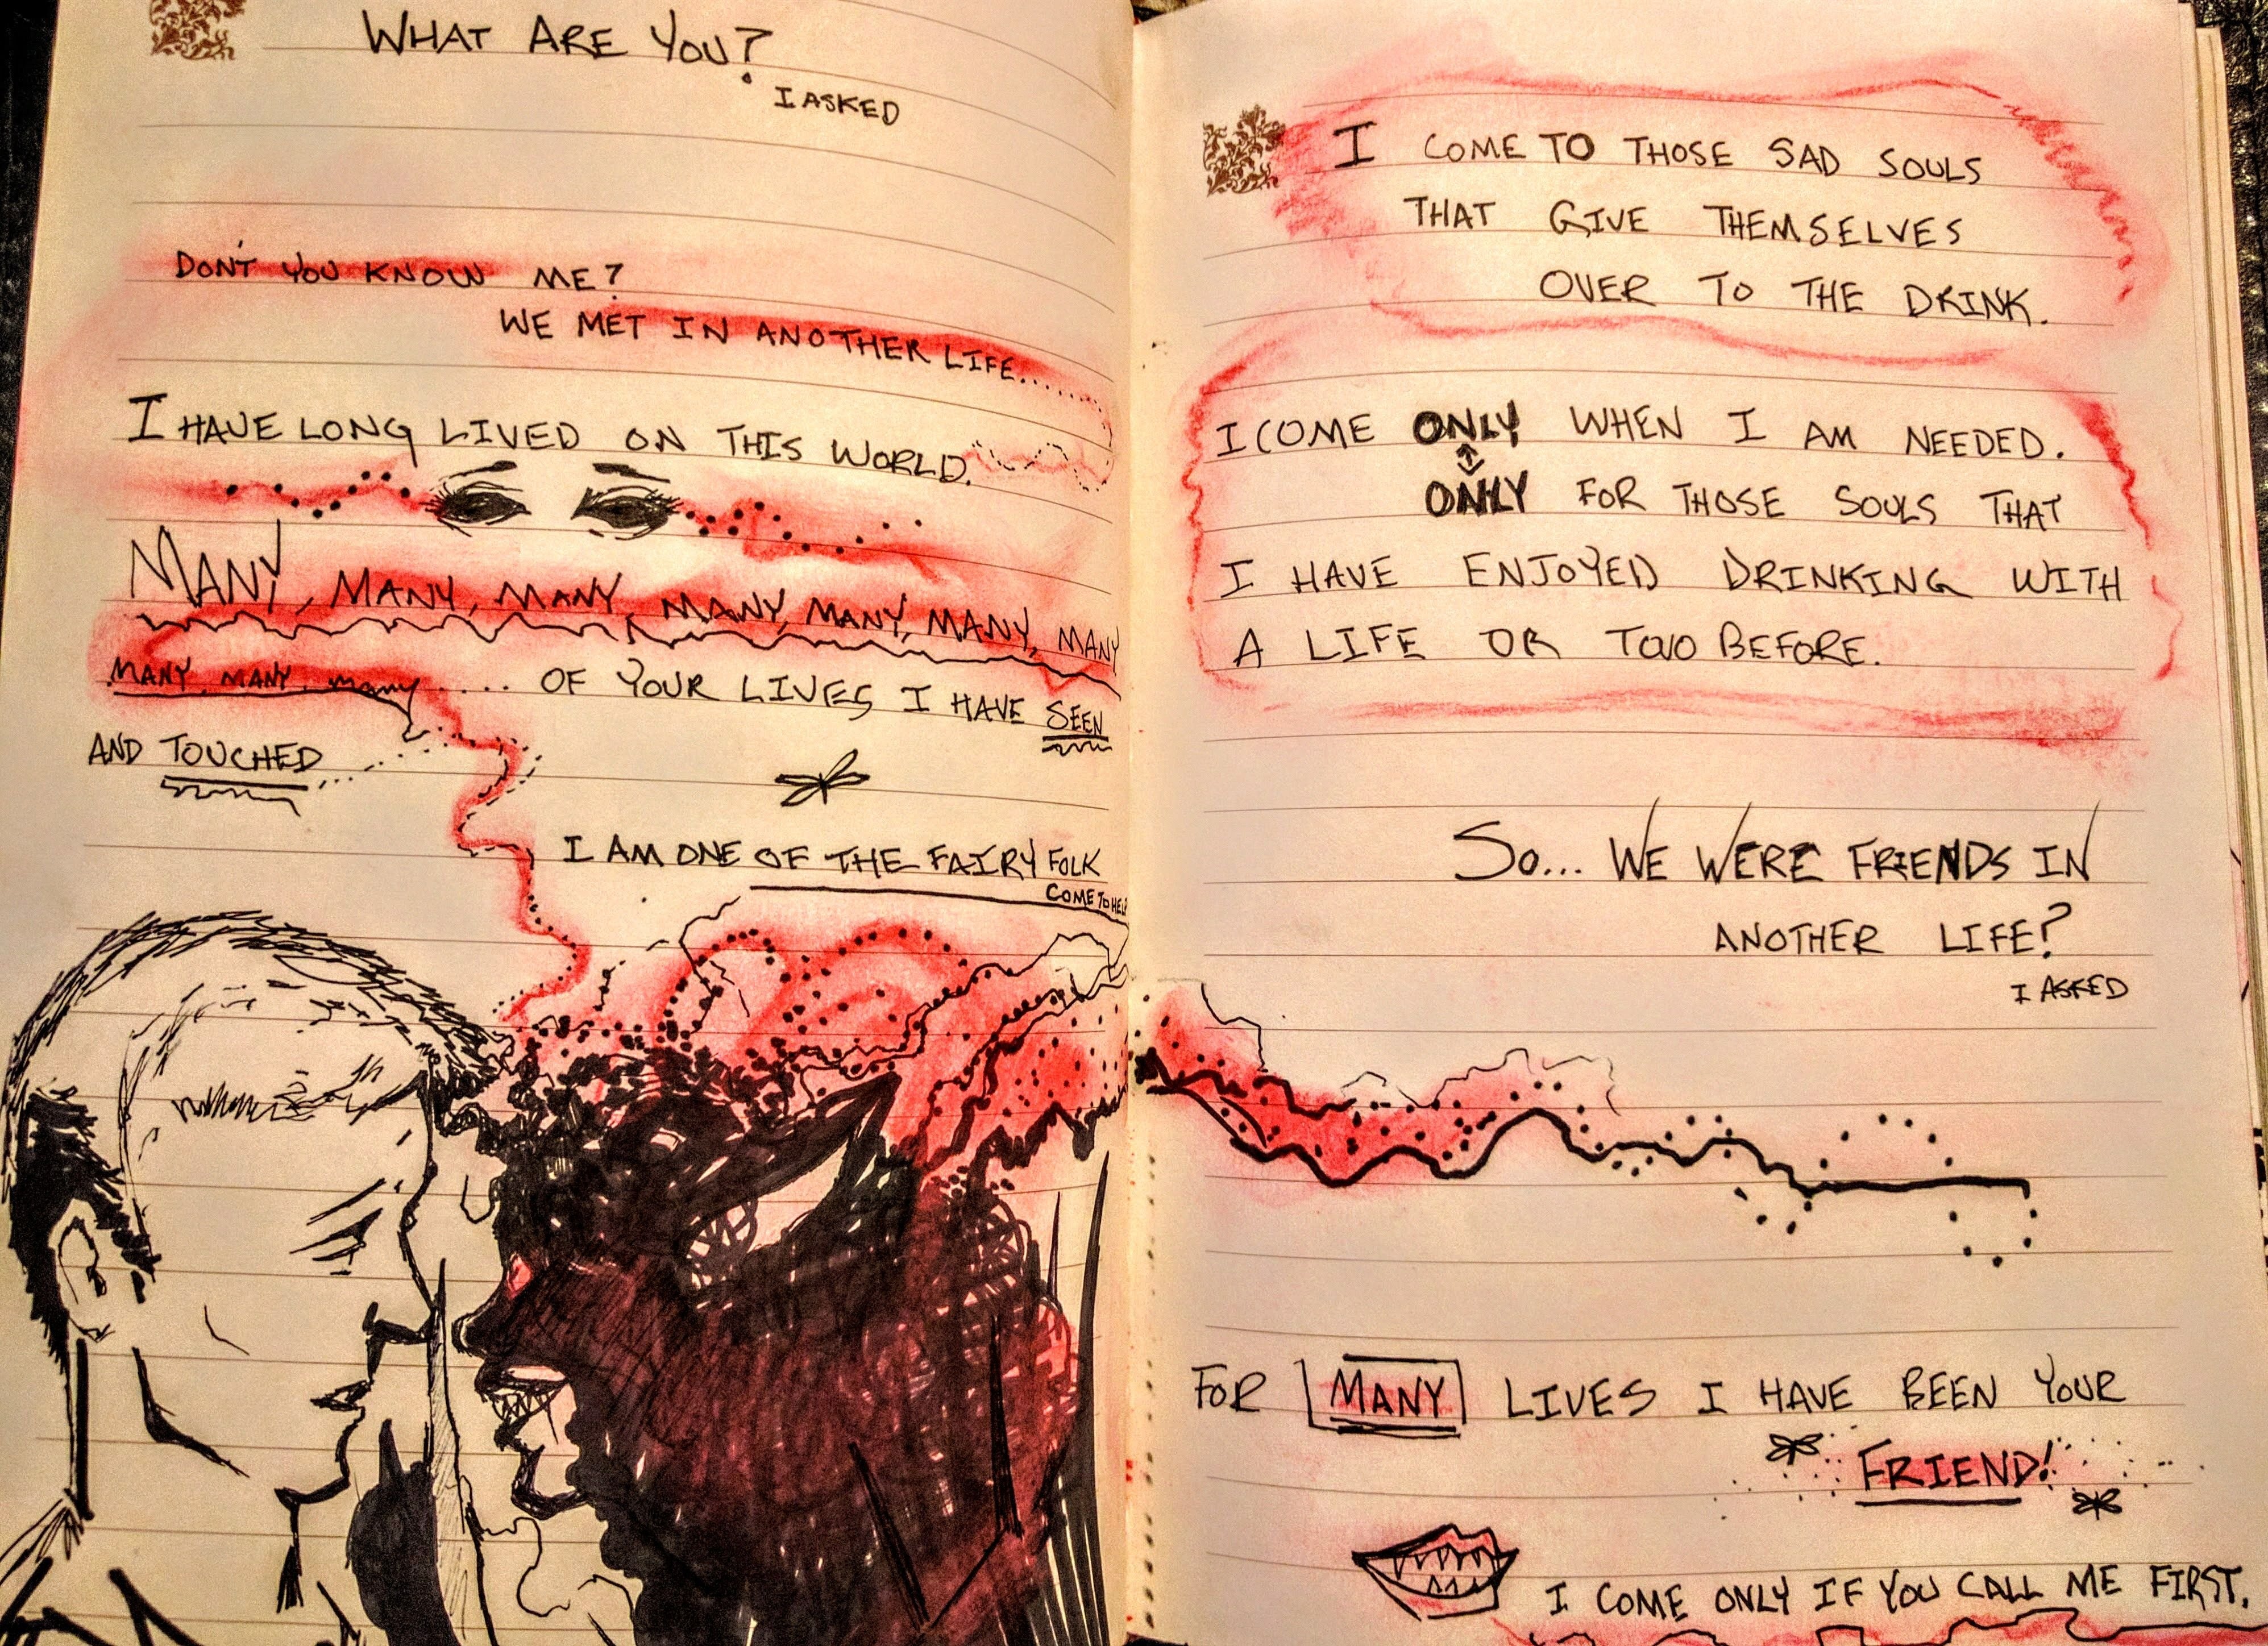 WHAT ARE YOU?
I ASKED
DON'T YOU KNOW ME?
WE MET IN ANOTHER LIFE......
I HAVE LONG LIVED ON THIS WORLD.
MANY, MANY, MANY, MANY, MANY, MANY, MANY
MANY, MANY, MANY ..... OF YOUR LIVES I HAVE SEEN
AND TOUCHED
I AM ONE OF THE FAIRY FOLK
COME TO HELP
I COME TO THOSE SAD SOULS
THAT GIVE THEMSELVES
OVER TO THE DRINK.
I COME ONLY WHEN I AM NEEDED.
ONLY FOR THOSE SOULS THAT
I HAVE ENJOYED DRINKING WITH
A LIFE OR TWO BEFORE.
SO... WE WERE FRIENDS IN
ANOTHER LIFE?
I ASKED
FOR MANY LIVES I HAVE BEEN YOUR
FRIEND!
I COME ONLY IF YOU CALL ME FIRST.